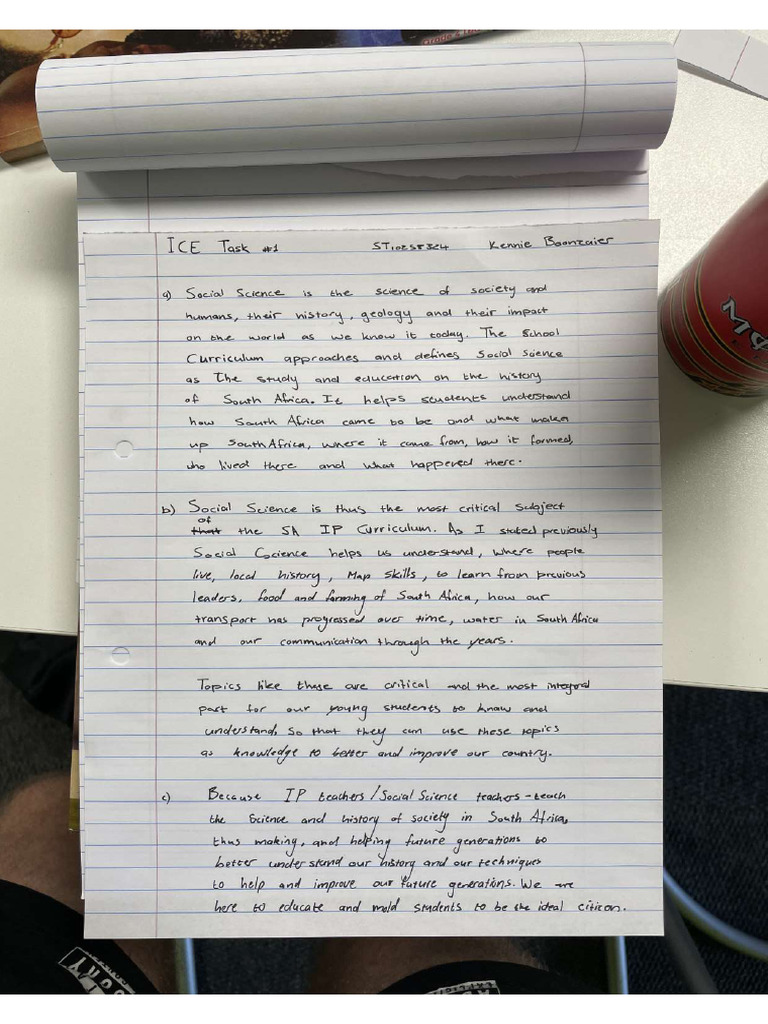 ICE Task #1 Kennie Boonzaier
a) Social Science is the science of society and
humans, their history, geology and their impact
on the world as we know it today. The School
Curriculum approaches and defines Social science
as The study and education on the history
of South Africa. It helps students understand
how South Africa came to be and what makes
up South Africa, where it came from, how it formed,
who lived there and what happened there.
b) Social Science is thus the most critical subject
of
that the SA IP Curriculum. As I stated previously
Social Science helps us understand, where people
live, local history, Map skills, to learn from previous
leaders, food and farming of South Africa, how our
transport has progressed over time, water in South Africa
and our communication through the years.
Topics like these are critical and the most integral
part for our young students to know and
understand, so that they can use these topics
as knowledge to better and improve our country.
c) Because IP teachers/Social Science teachers teach
the Science and history of society in South Africa,
thus making, and helping future generations to
better understand our history and our techniques
to help and improve our future generations. We are
here to educate and mold students to be the ideal citizen.